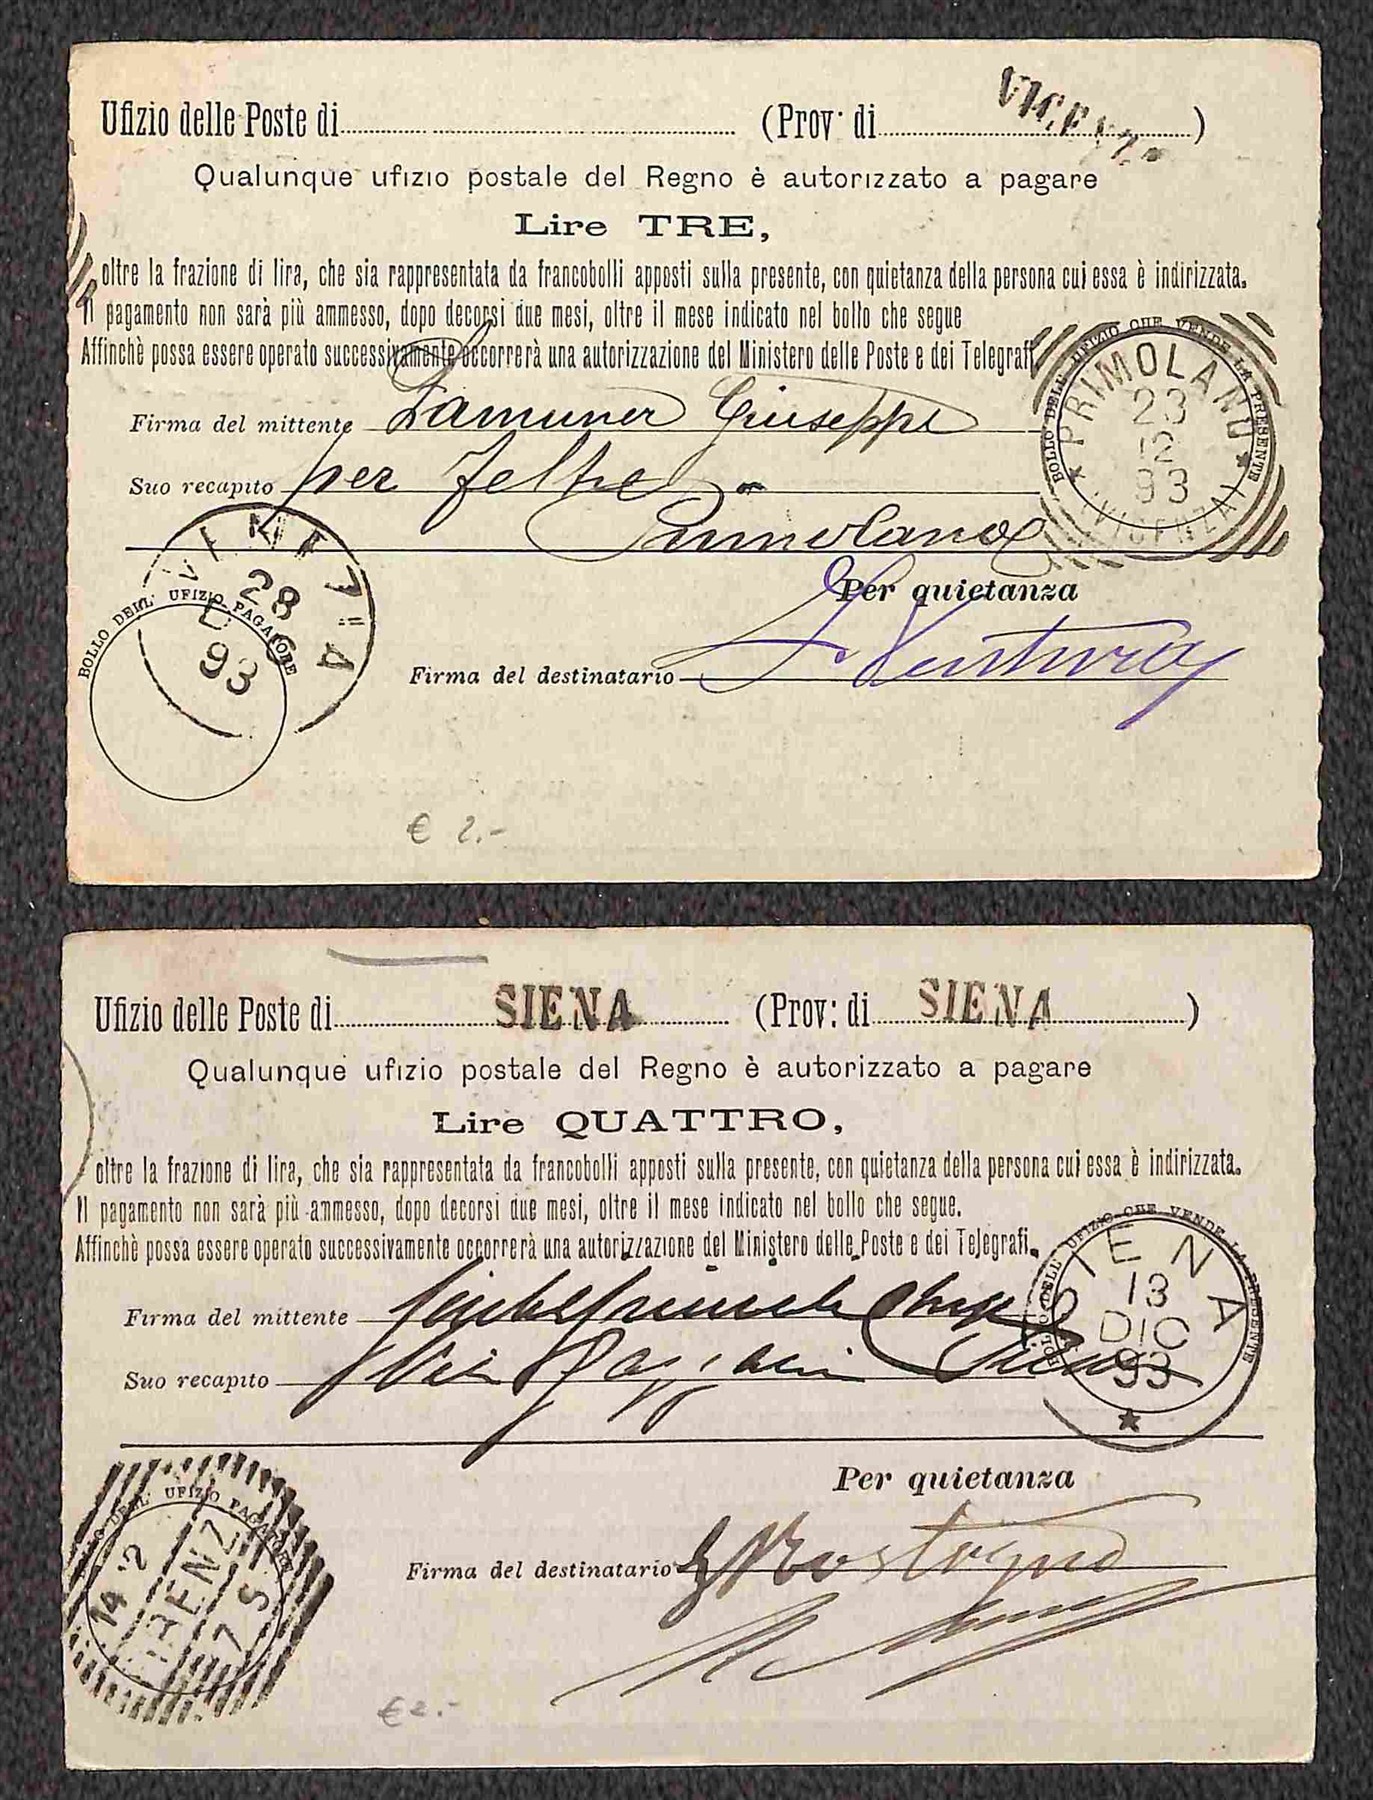 Ufizio delle Poste di (Prov. di VICENZA)
Qualunque ufizio postale del Regno è autorizzato a pagare
Lire TRE,
oltre la frazione di lira, che sia rappresentata da francobolli apposti sulla presente, con quietanza della persona cui essa è indirizzata.
Il pagamento non sarà più ammesso, dopo decorsi due mesi, oltre il mese indicato nel bollo che segue
Affinchè possa essere operato successivamente occorrerà una autorizzazione del Ministero delle Poste e dei Telegrafi
BOLLO DELL' UFIZIO CHE VENDE LA PRESENTE
PRIMOLANO
23
12
93
(VICENZA)
Firma del mittente Zamuner Giuseppe
Suo recapito per Feltre
Primolano
VENEZIA
28
93
BOLLO DELL' UFIZIO PAGATORE
Per quietanza
Firma del destinatario Ventura
€ 2.-
Ufizio delle Poste di SIENA (Prov: di SIENA)
Qualunque ufizio postale del Regno è autorizzato a pagare
Lire QUATTRO,
oltre la frazione di lira, che sia rappresentata da francobolli apposti sulla presente, con quietanza della persona cui essa è indirizzata.
Il pagamento non sarà più ammesso, dopo decorsi due mesi, oltre il mese indicato nel bollo che segue.
Affinchè possa essere operato successivamente occorrerà una autorizzazione del Ministero delle Poste e dei Telegrafi.
BOLLO DELL' UFIZIO CHE VENDE LA PRESENTE
SIENA
13
DIC
93
Firma del mittente
Suo recapito Via Siena
Per quietanza
BOLLO DELL' UFIZIO PAGATORE
14 12
FIRENZ
7 S
Firma del destinatario
€ 2.-